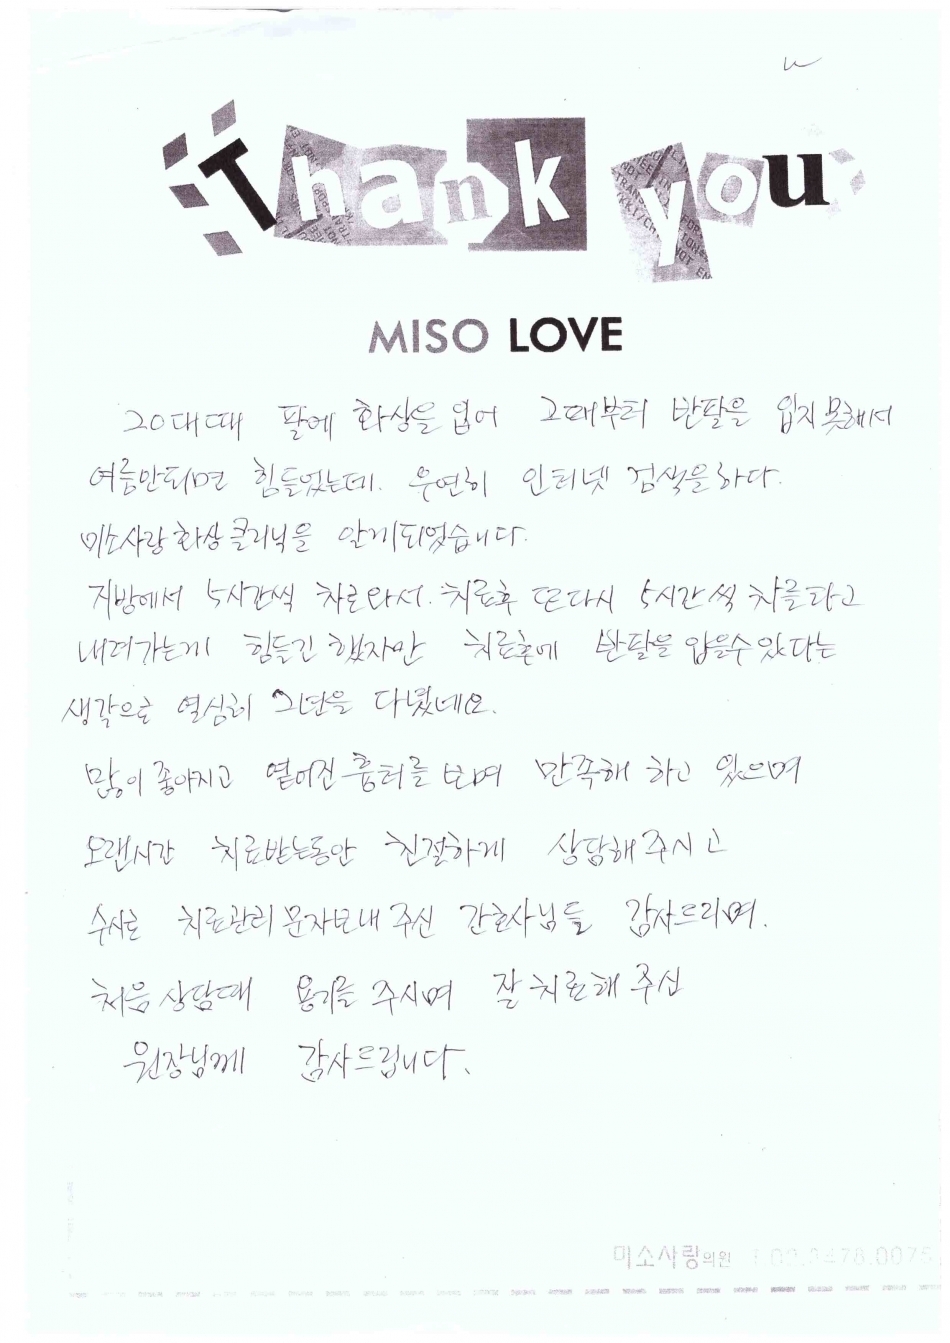 Thank you
MISO LOVE
20대때 팔에 화상을 입어 그때부터 반팔을 입지 못해서
여름만되면 힘들었는데. 우연히 인터넷 검색을하다.
미소사랑화상클리닉을 알게되었습니다.
지방에서 5시간씩 차로와서. 치료후 또다시 5시간씩 차를타고
내려가는게 힘들긴 했지만 치료후에 반팔을 입을수있다는
생각으로 열심히 2년을 다녔네요.
많이 좋아지고 옅어진 흉터를 보며 만족해 하고 있으며
오랜시간 치료받는동안 친절하게 상담해주시고
수시로 치료관리 문자보내주신 간호사님들 감사드리며.
처음 상담때 용기를 주시며 잘 치료해 주신
원장님께 감사드립니다.
미소사랑의원 T.02.3478.0075